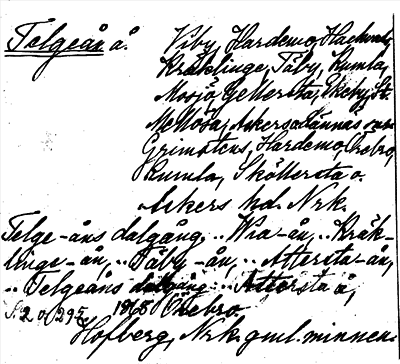 Telgeån å. Viby, Hardemo, Hackvad,
Kräklinge, Täby, Kumla,
Mosjö, Gellersta, Ekeby, St.
Mellösa, Askers a. Lännäs snr
Grimstens, Hardemo, Örebro,
Kumla, Sköllersta o.
Askers hd. Nrk.
Telge-åns dalgång, .. Wia-ån, .. Kräk-
linge-ån, .. Täby-ån, .. Attersta-ån,
.. Telgeåns dalgång .. Attersta å,
S. 2 o. 295 1868 Örebro.
Hofberg, Nrk. gml. minnen.